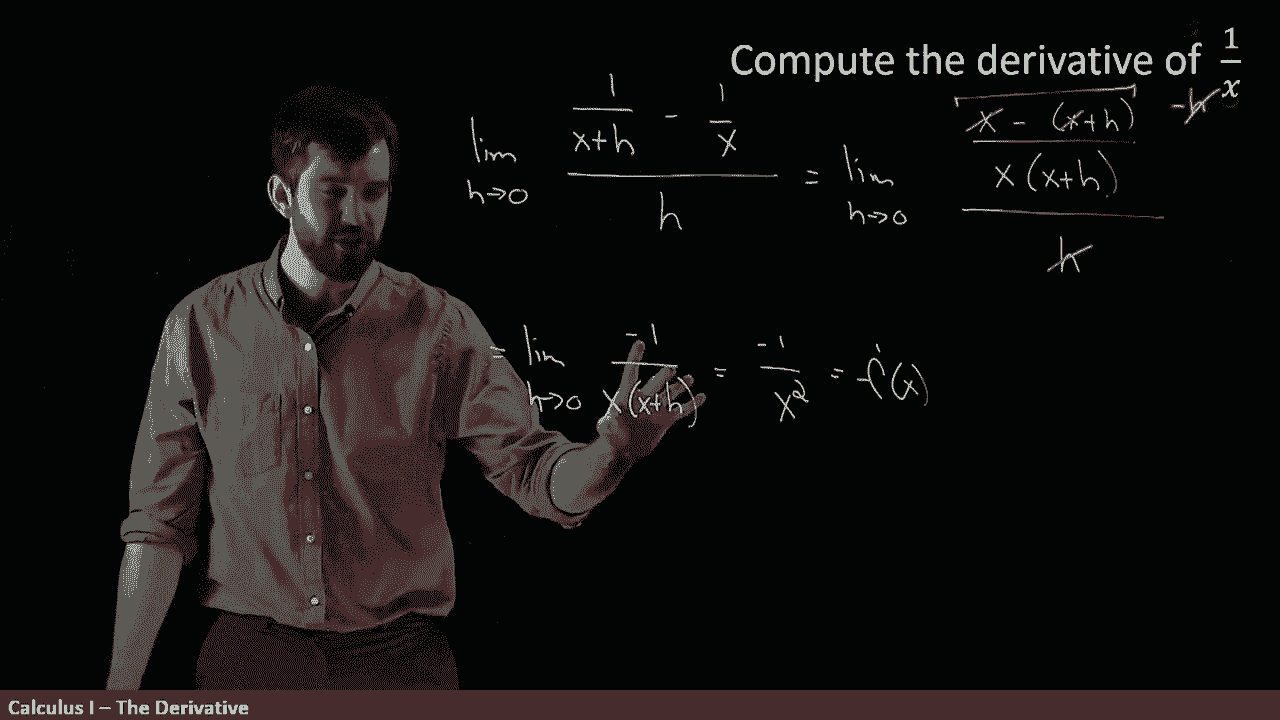 Compute the derivative of 1/x
lim h→0 (1/(x+h) - 1/x)/h = lim h→0 ((x - (x+h))/(x(x+h)))/h -h
= lim h→0 -1/(x(x+h)) = -1/x² = f'(x)
Calculus I – The Derivative